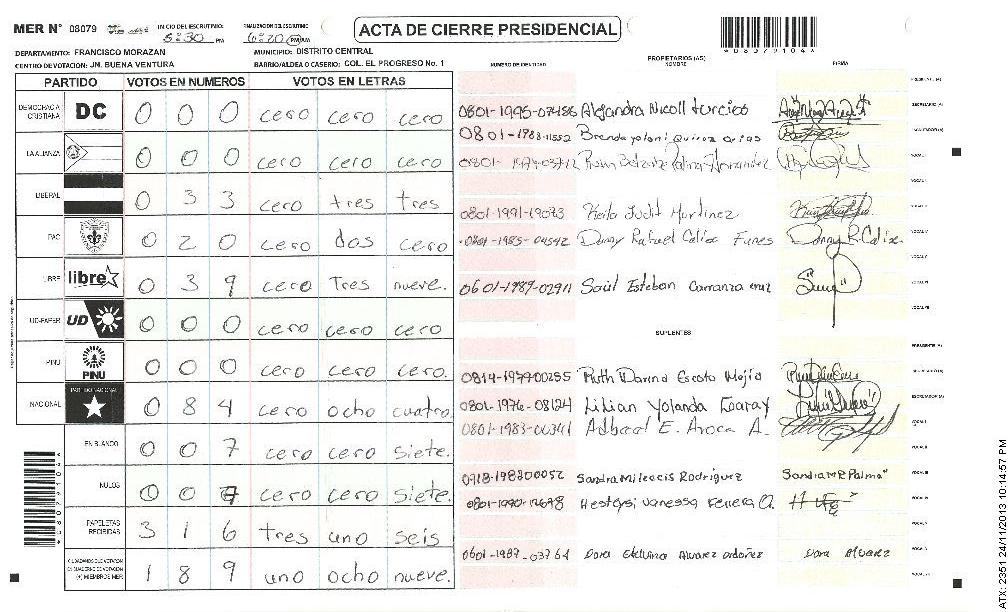 MER N° 08079 INICIO DEL ESCRUTINIO: 5:30 PM FINALIZACION DEL ESCRUTINIO 6:20 PM/AM ACTA DE CIERRE PRESIDENCIAL
DEPARTAMENTO: FRANCISCO MORAZAN MUNICIPIO: DISTRITO CENTRAL
CENTRO DE VOTACION: JN. BUENA VENTURA BARRIO/ALDEA O CASERIO: COL. EL PROGRESO No. 1
NUMERO DE IDENTIDAD PROPIETARIOS (AS) NOMBRE FIRMA
PARTIDO VOTOS EN NUMEROS VOTOS EN LETRAS
DEMOCRACIA CRISTIANA DC 0 0 0 cero cero cero
LA ALIANZA 0 0 0 cero cero cero
LIBERAL 0 3 3 cero tres tres
PAC 0 2 0 cero dos cero
LIBRE libre 0 3 9 cero Tres nueve.
UD-FAPER UD 0 0 0 cero cero cero
PINU PINU 0 0 0 cero cero cero.
NACIONAL PARTIDO NACIONAL 0 8 4 cero ocho cuatro
EN BLANCO 0 0 7 cero cero siete.
NULOS 0 0 7 cero cero siete.
PAPELETAS RECIBIDAS 3 1 6 tres uno seis
(+) MIEMBROS MER 1 8 9 uno ocho nueve.
0801-1995-07456 Alejandra Nicoll Turcios
0801-1988-11552 Brenda Yolani
0801-1974-03712
0801-1991-19023 Keila Judit Martinez
0801-1985-04542 Danny Rafael Calix Funes Danny R. Calix.
0601-1989-02911 Saúl Esteban Carranza cruz
SUPLENTES
0814-197900255 Ruth Darina Escoto Mejia
0801-1976-08124 Lilian Yolanda
0801-1983-00341 E. A.
Sandra Rodriguez Sandra M. Palma
Vanessa
0601-1987-03764 Dora Alvarez ordoñez Dora Alvarez
ATX: 2351 24/11/2013 10:14:57 PM